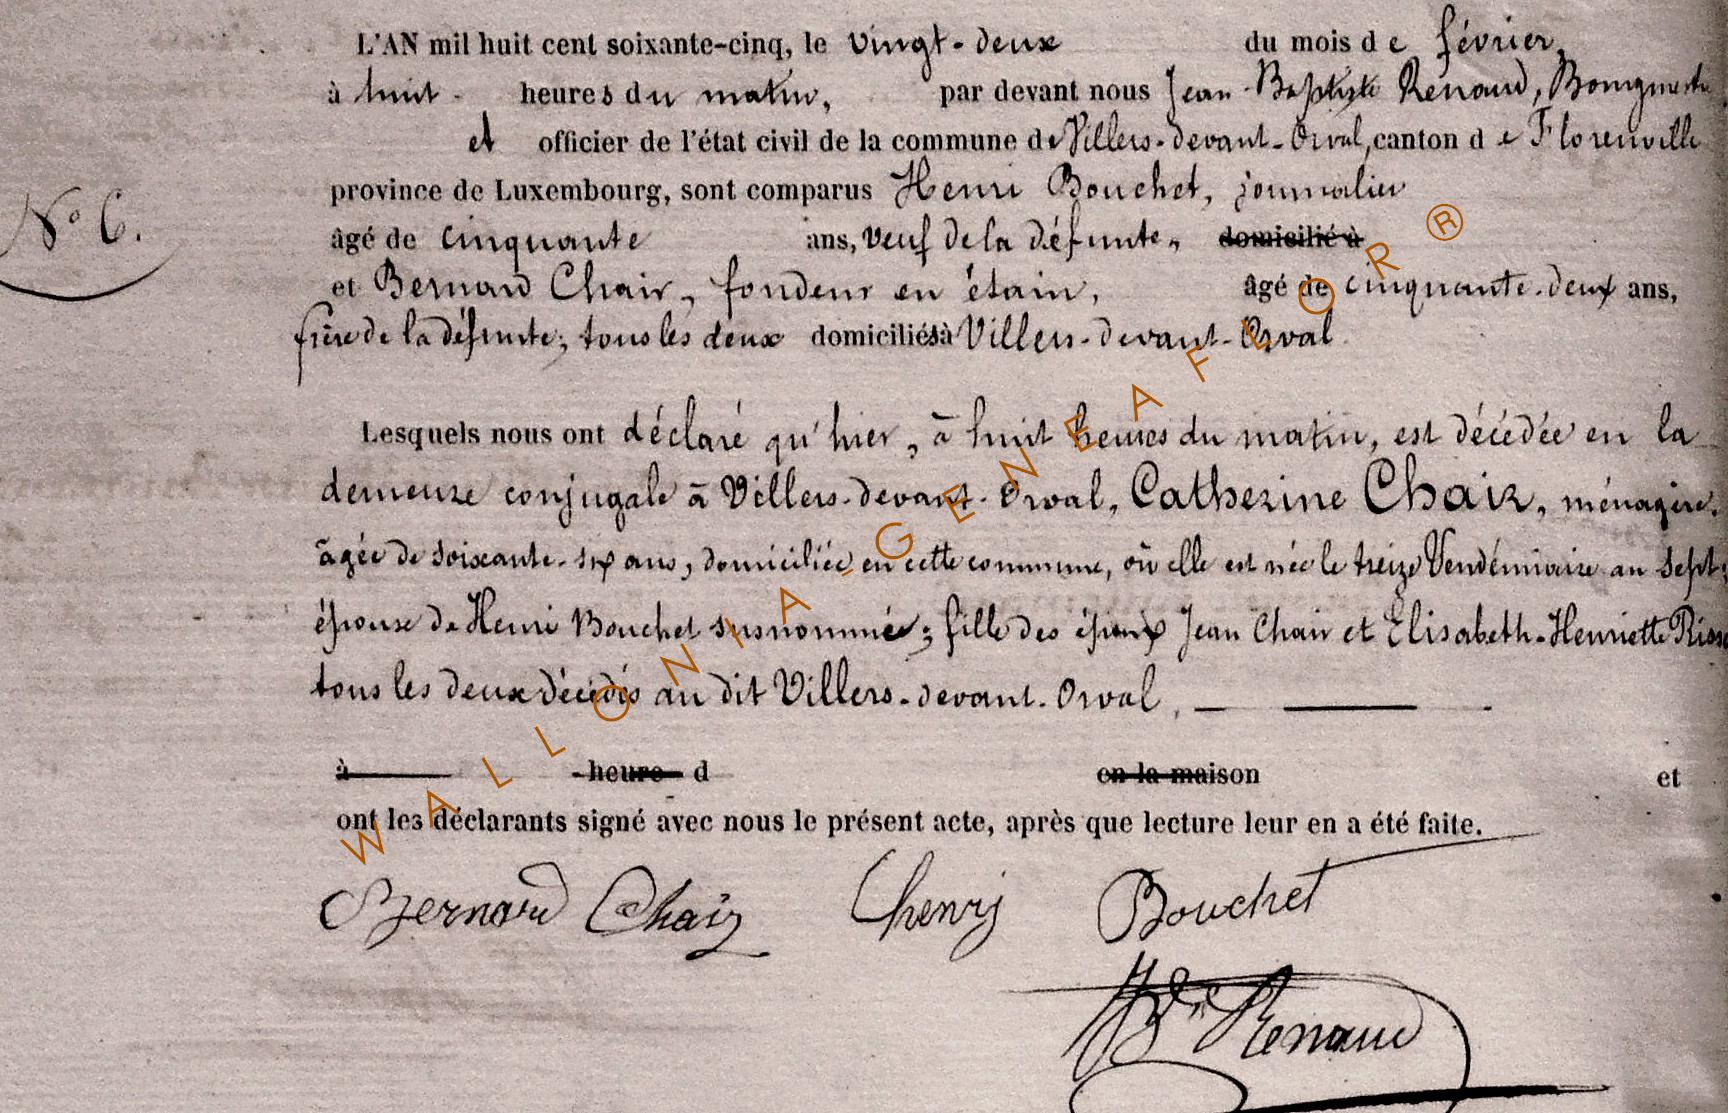 L'AN mil huit cent soixante-cinq, le vingt-deux du mois de février,
à huit heures du matin, par devant nous Jean-Baptiste Renaud, Bourgmestre
et officier de l'état civil de la commune de Villers-devant-Orval, canton de Florenville
province de Luxembourg, sont comparus Henri Bouchet, journalier
N° 6.
âgé de cinquante ans, veuf de la défunte, domicilié à
et Bernard Chair, fondeur en étain, âgé de cinquante-deux ans,
frère de la défunte; tous les deux domiciliés à Villers-devant-Orval
Lesquels nous ont déclaré qu'hier, à huit heures du matin, est décédée en la
demeure conjugale à Villers-devant-Orval, Catherine Chair, ménagère,
âgée de soixante-six ans, domiciliée en cette commune, où elle est née le treize Vendémiaire an sept;
épouse de Henri Bouchet susnommé; fille des époux Jean Chair et Elisabeth-Henriette
tous les deux décédés au dit Villers-devant-Orval.
à heure d en la maison et
ont les déclarants signé avec nous le présent acte, après que lecture leur en a été faite.
Bernard Chair henry Bouchet
Renaud
WALLONIA-GENEAFLOR®